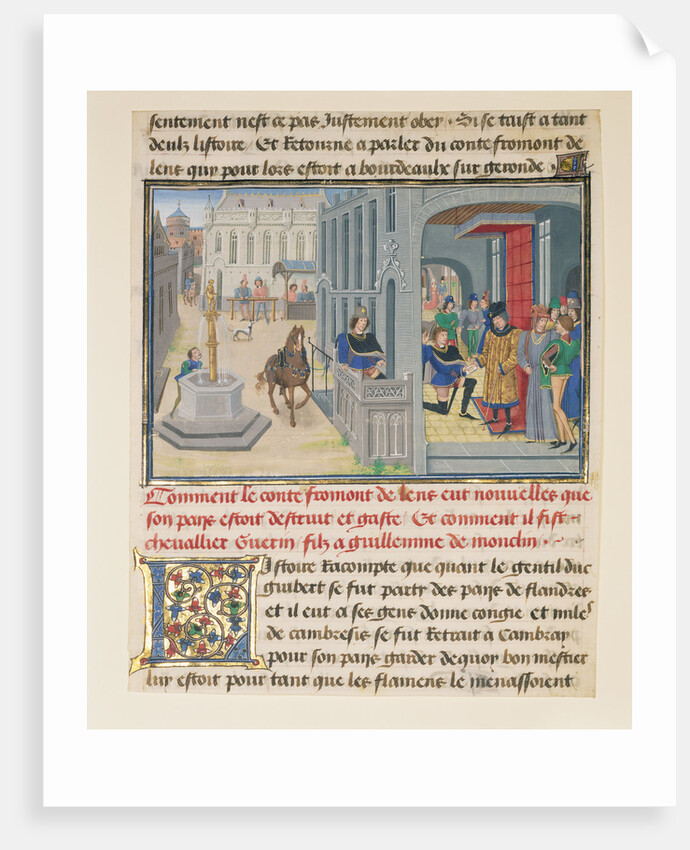 sentement nest ce pas Justement ober . Si se taist a tant
deulx listoire / Et Retourne a parler du conte fromont de
lens quy pour lors estoit a bourdeaulx sur geronde .
Comment le conte fromont de lens eut nouvelles que
son pays estoit destruit et gaste / Et comment il fist
chevallier Guerin / filz a guillemme de monclin .
Listoire Racompte que quant le gentil duc
guibert se fut party des pays de flandres
et il eut a ses gens donne congie et miles
de cambresis se fut Retrait à Cambray
pour son pays garder de quoy bon mestier
luy estoit pour tant que les flamens le menassoient